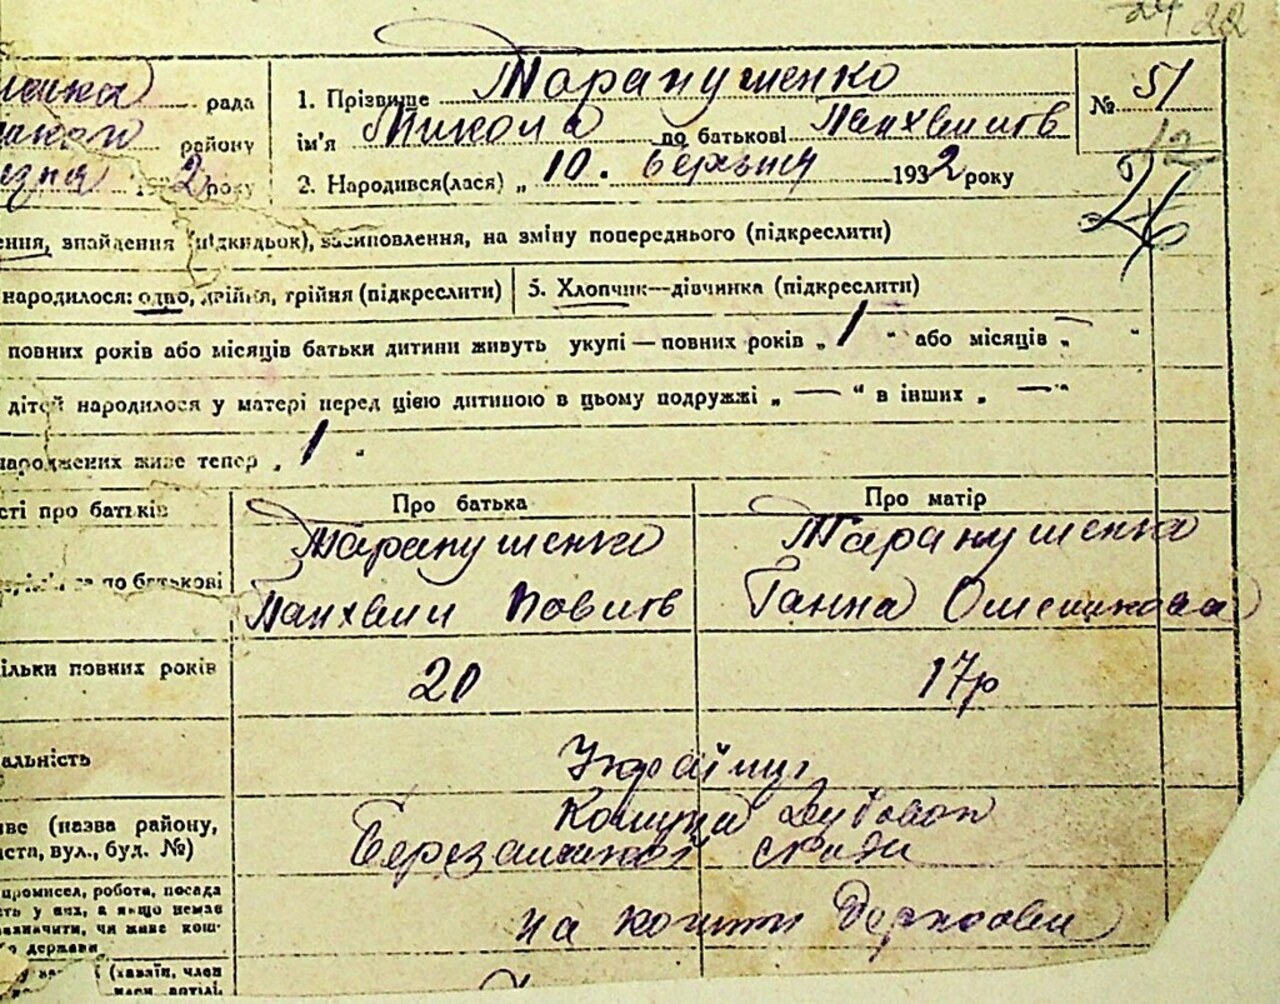 24 22
рада
1. Прізвище Тарапушенко
№ 51
району
ім'я Микола по батькові
12
1932 року
2. Народився(лася) „ 10. березня 1932 року
26
ення, знайдення (підкидьок), усиновлення, на зміну попереднього (підкреслити)
народилося: одно, двійня, трійня (підкреслити)
5. Хлопчик—дівчинка (підкреслити)
повних років або місяців батьки дитини живуть укупі — повних років „ 1 " або місяців „ — "
дітей народилося у матері перед цією дитиною в цьому подружжі „ — " в інших „ — "
народжених живе тепер „ 1 "
сті про батьків
Про батька
Про матір
Тарапушенко
Тарапушенко
по батькові
Ганна
ільки повних років
20
17р
альність
Українці
ве (назва району,
Комуна
іста, вул., буд. №)
Березанської
промисел, робота, посада
сть у них, а якщо немає
зазначити, чи живе кош-
держави
на кошти Держави
(хазяїн, член